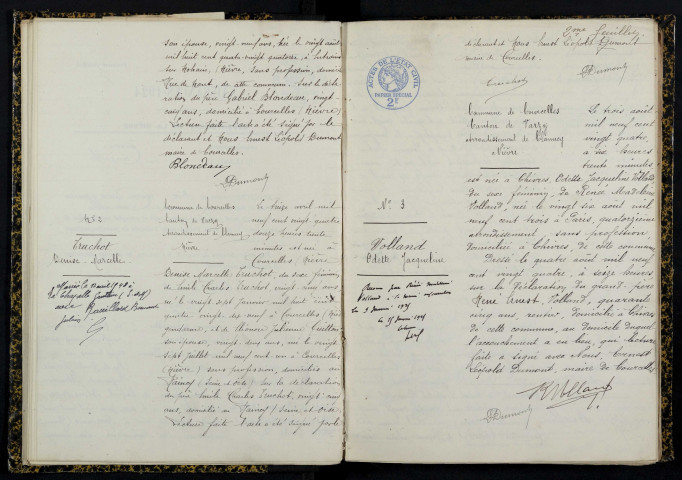 son épouse, vingt neuf ans, née le vingt août
mil huit cent quatre vingt quatorze à
Nièvre, sans profession, domicilié
rue de Mont, de cette commune. Sur la décla-
ration du père Gabriel Blondeau, vingt
cinq ans, domicilié à Courcelles (Nièvre)
Lecture faite l'acte a été signé par le
déclarant et Nous Ernest Léopold Dumont
maire de Courcelles.
Blondeau
Dumont
N° 2
Truchot
Denise Marcelle
Commune de Courcelles
Canton de Varzy
Arrondissement de Clamecy
Nièvre
Le seize avril mil
neuf cent vingt quatre
douze heures trente
minutes est née à
Courcelles Nièvre
Denise Marcelle Truchot, du sexe féminin
de Emile Charles Truchot, vingt cinq ans
né le vingt sept janvier mil huit cent quatre
vingt dix neuf à Courcelles (Nièvre)
et de Léonor Julienne Guillou
son épouse, vingt deux ans, née le vingt
sept juillet mil neuf cent un à Courcelles
(Nièvre) sans profession, domiciliés au
Raincy (Seine et Oise) Sur la déclaration
du père Emile Charles Truchot, vingt cinq
ans, domicilié au Raincy (Seine et Oise)
Lecture faite l'acte a été signé par le
2ème feuillet
déclarant et Nous Ernest Léopold Dumont
maire de Courcelles.
Truchot
Dumont
ACTES DE L'ÉTAT CIVIL
PAPIER SPÉCIAL
2F
N° 3
Volland
Odette Jacqueline
Commune de Courcelles
Canton de Varzy
Arrondissement de Clamecy
Nièvre
Le trois août
mil neuf cent
vingt quatre
à six heures
trente minutes
est née à Chivres, Odette Jacqueline Volland
du sexe féminin, de Renée Madeleine
Volland, née le vingt six août mil
neuf cent trois à Paris, quatorzième
arrondissement, sans profession
domiciliée à Chivres, de cette commune
Dressé le quatre août mil neuf
cent vingt quatre, à seize heures
sur la déclaration du grand-père
René Ernest Volland, quarante
cinq ans, domicilié à Chivres
de cette commune, au domicile duquel
l'accouchement a eu lieu, qui lecture
faite a signé avec Nous, Ernest
Léopold Dumont, maire de Courcelles
R Volland
Dumont